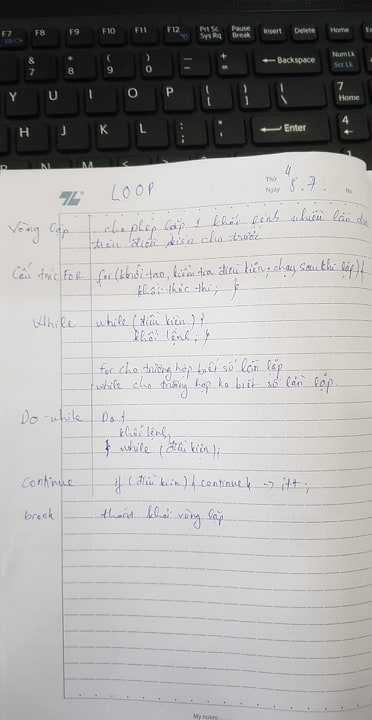 F7 F8 F9 F10 F11 F12 Prt Sc Sys Rq Pause Break Insert Delete Home
& 7 * 8 ( 9 ) 0 — - + = ← Backspace Num Lk Scr Lk
Y U I O P { [ } ] | \ 7 Home
H J K L : ; " ' ← Enter 4 ←
N M
LOOP
Thứ 4
Ngày 8.7. No.
Vòng lặp cho phép lặp 1 khối lệnh nhiều lần
trên điều kiện cho trước
Cấu trúc FOR for(khởi tạo; kiểm tra điều kiện; chạy sau khi lặp){
khối thực thi; }
While while (điều kiện) {
khối lệnh; }
for cho trường hợp biết số lần lặp
while cho trường hợp ko biết số lần lặp.
Do-while Do {
khối lệnh;
} while (điều kiện);
Continue if (điều kiện) { continue } → i++;
break thoát khỏi vòng lặp
My notes: